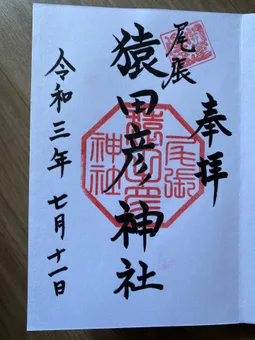 奉拝
尾張
猿田彦神社
令和三年 七月十一日
尾張
猿田彦
神社